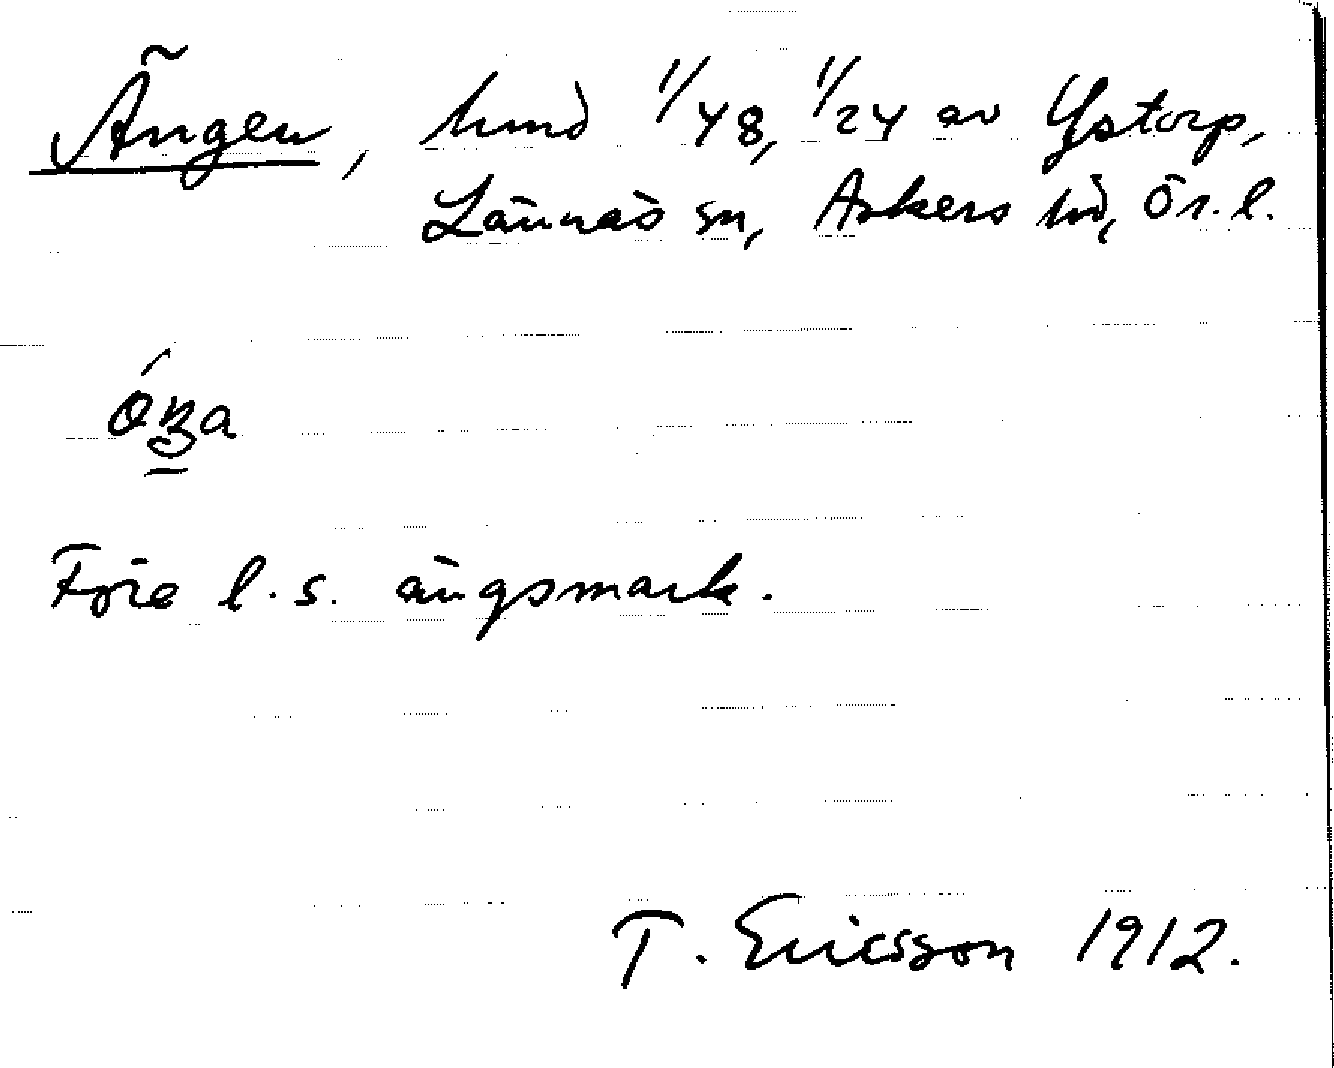 Ängen, hmd 1/48, 1/24 av Ystorp,
Lännäs sn, Askers hd, Ör. l.
Före l. s. ängsmark.
T. Ericsson 1912.